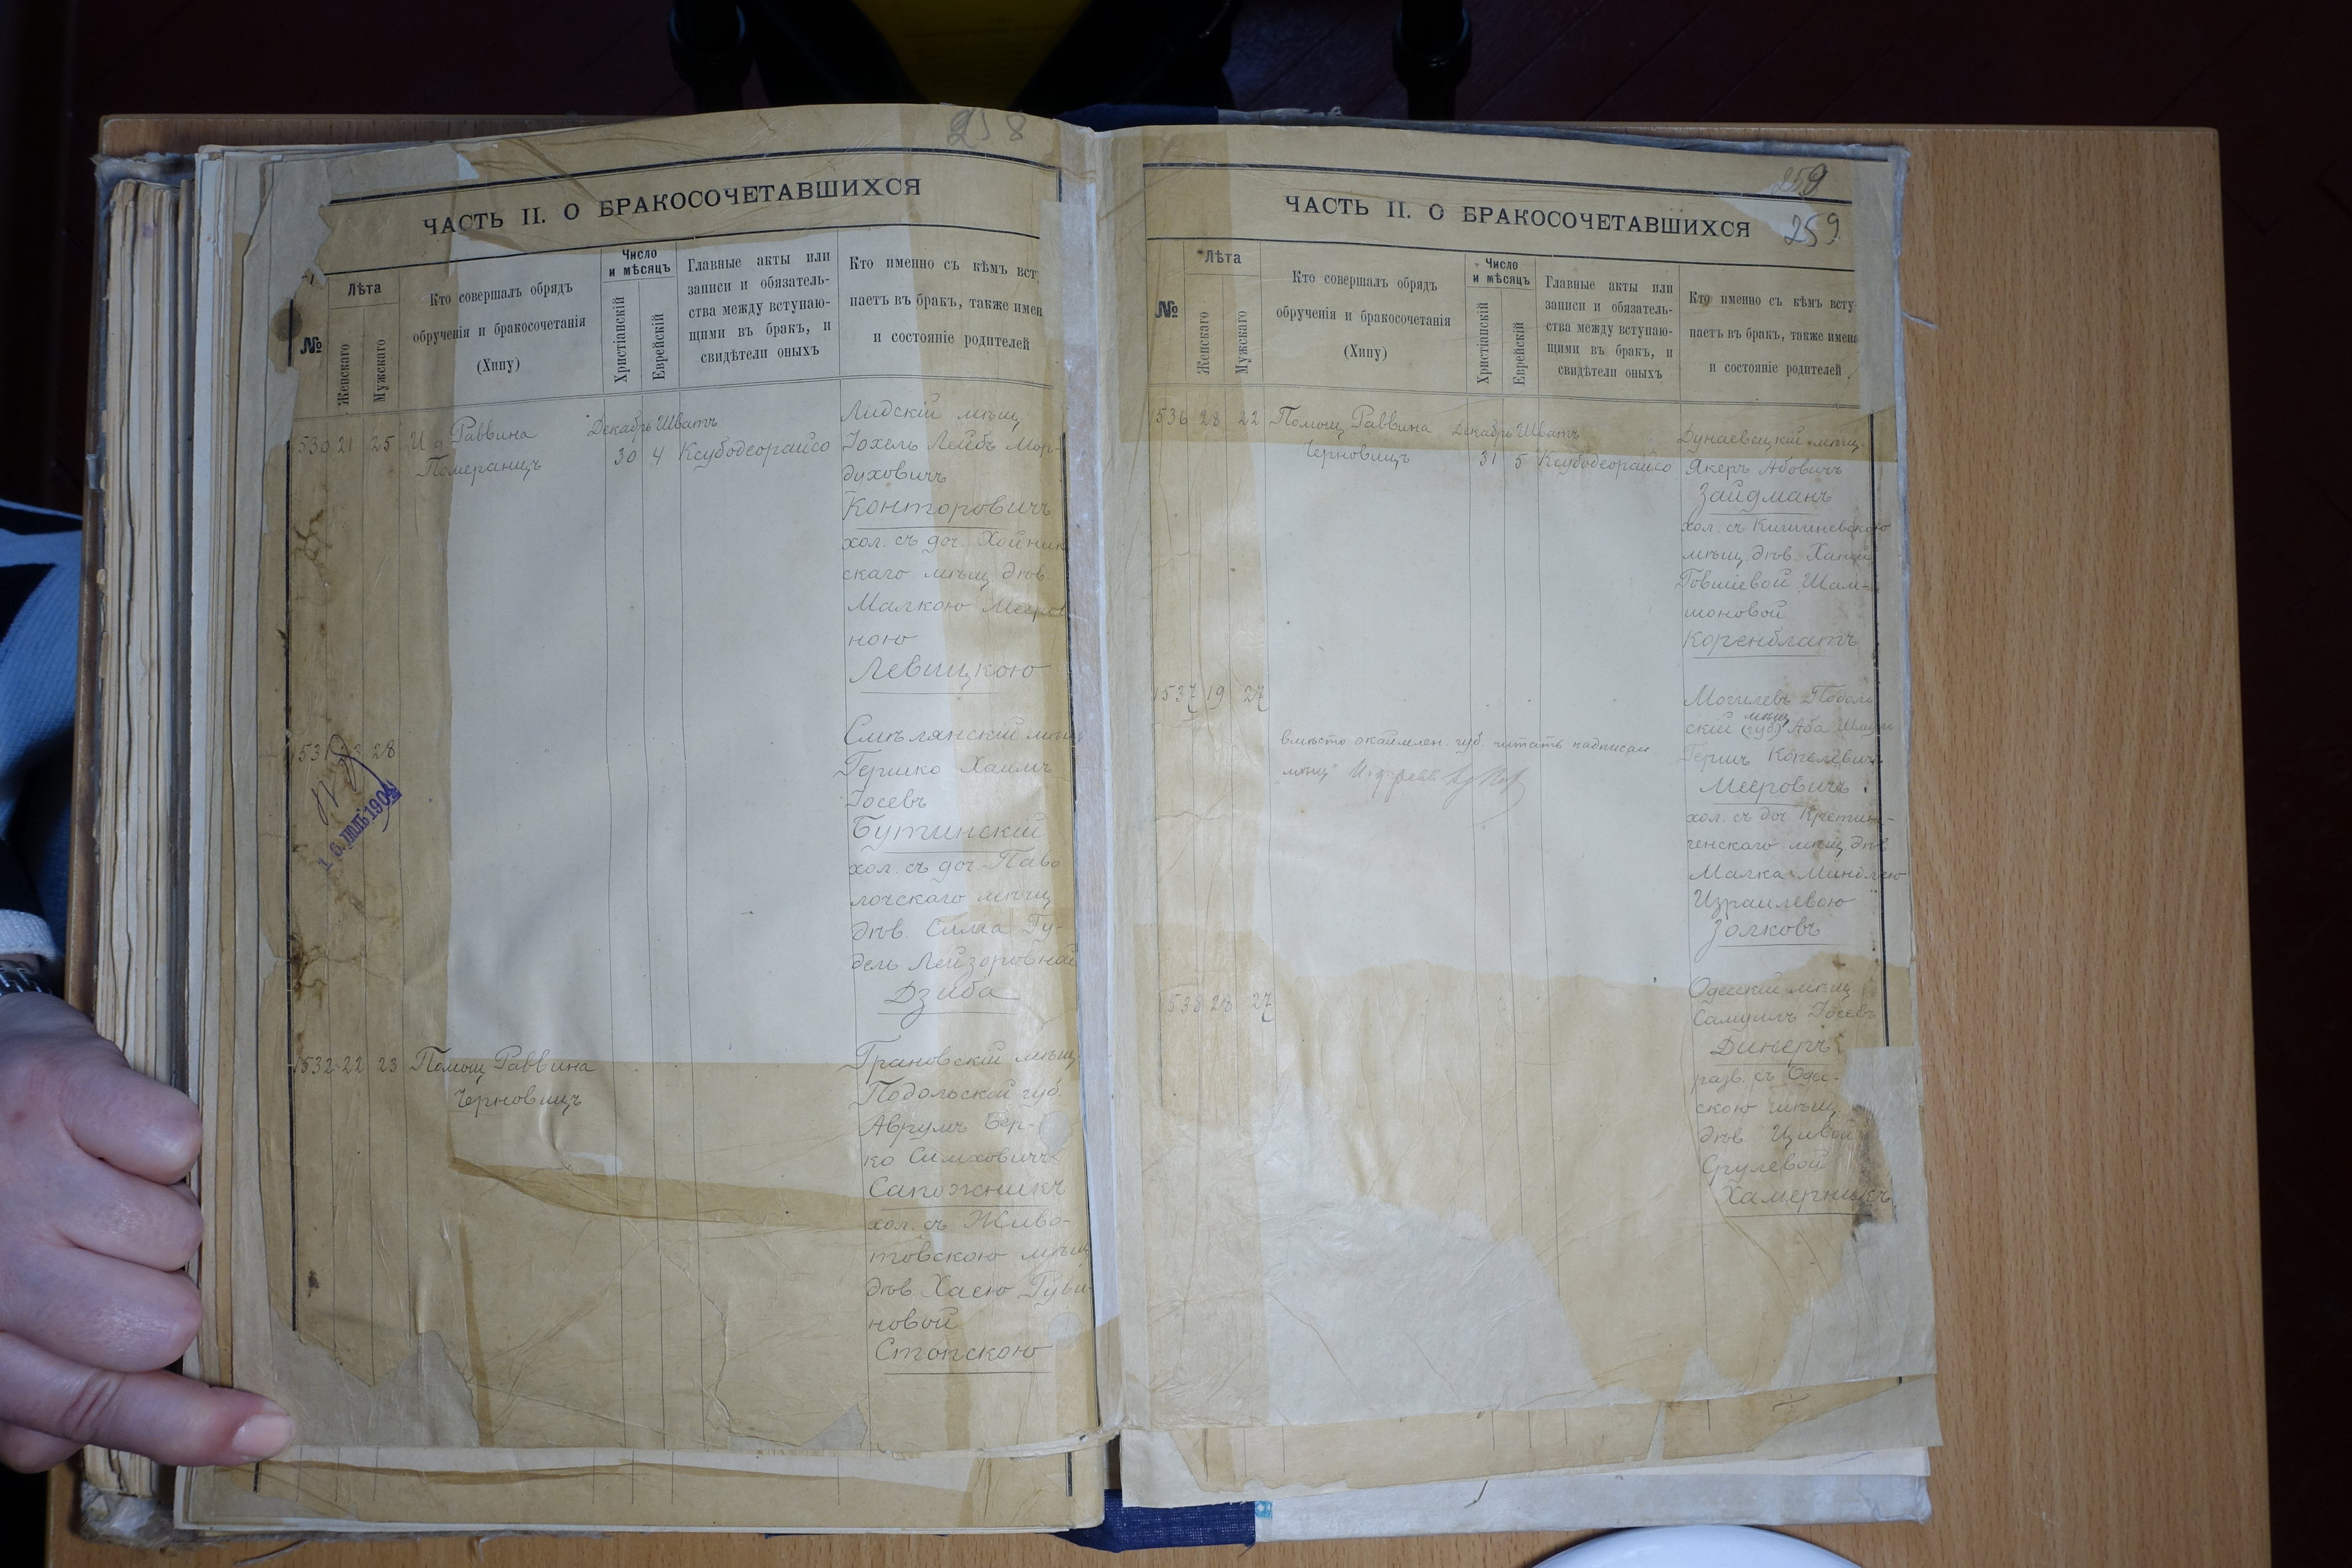 258
ЧАСТЬ II. О БРАКОСОЧЕТАВШИХСЯ
№
Лѣта
Женскаго
Мужскаго
Кто совершалъ обрядъ
обрученія и бракосочетанія
(Хипу)
Число
и мѣсяцъ
Христіанскій
Еврейскій
Главные акты или
записи и обязатель-
ства между вступаю-
щими въ бракъ, и
свидѣтели оныхъ
Кто именно съ кѣмъ всту
паетъ въ бракъ, также имен
и состояніе родителей
1530 21 25 И д Раввина
Померанцъ
Декабрь Шватъ
30 4 Ксубодеорайсо
Лидскій мѣщ
Іохель Лейбъ Мор-
духовичъ
Конторовичъ
хол. съ доч. Хойник
скаго мѣщ дѣв
Малкою Мееров
ною
Левицкою
1531 23 28
16 ІЮЛЬ 1904
Смѣлянскій мѣщ
Гершко Хаимъ
Іосевъ
Бутинскій
хол. съ доч Паво
лочскаго мѣщ
дѣв. Сима Гу-
дель Лейзоровной
Дзиба
1532 22 23 Помощ Раввина
Черновицъ
Грановскій мѣщ
Подольской губ.
Аврумъ Бер-
ко Симховичъ
Сапожникъ
хол. съ Живо-
товскою мѣщ
дѣв Хасю Гуви
новой
Стопскою
259
259
ЧАСТЬ II. О БРАКОСОЧЕТАВШИХСЯ
№
Лѣта
Женскаго
Мужскаго
Кто совершалъ обрядъ
обрученія и бракосочетанія
(Хипу)
Число
и мѣсяцъ
Христіанскій
Еврейскій
Главные акты или
записи и обязатель-
ства между вступаю-
щими въ бракъ, и
свидѣтели оныхъ
Кто именно съ кѣмъ всту-
паетъ въ бракъ, также имена
и состояніе родителей
1536 28 22 Помощ Раввина
Черновицъ
Декабрь Шватъ
31 5 Ксубодеорайсо
Дунаевецкій мѣщ
Якеръ Абовичъ
Зайдманъ
хол. съ Кишиневскою
мѣщ дѣв. Ханой
Говшіевой Шам-
шоновой
Коренблатъ
1537 19 27
вмѣсто окаймлен. губ. читать надписан
"мѣщ" И. д. равв
Могилевъ Подоль
мѣщ
скій (губ) Аба Шмуль
Гершъ Копелевичъ
Мееровичъ
хол. съ доч. Кретин-
генскаго мѣщ. дѣв
Малка Миндлею
Израилевою
Золковъ
1538 28 27
Одесскій мѣщ
Самуилъ Іосевъ
Динеръ
разв. съ Одес-
скою мѣщ.
дѣв Цивой
Срулевой
Хамерникъ